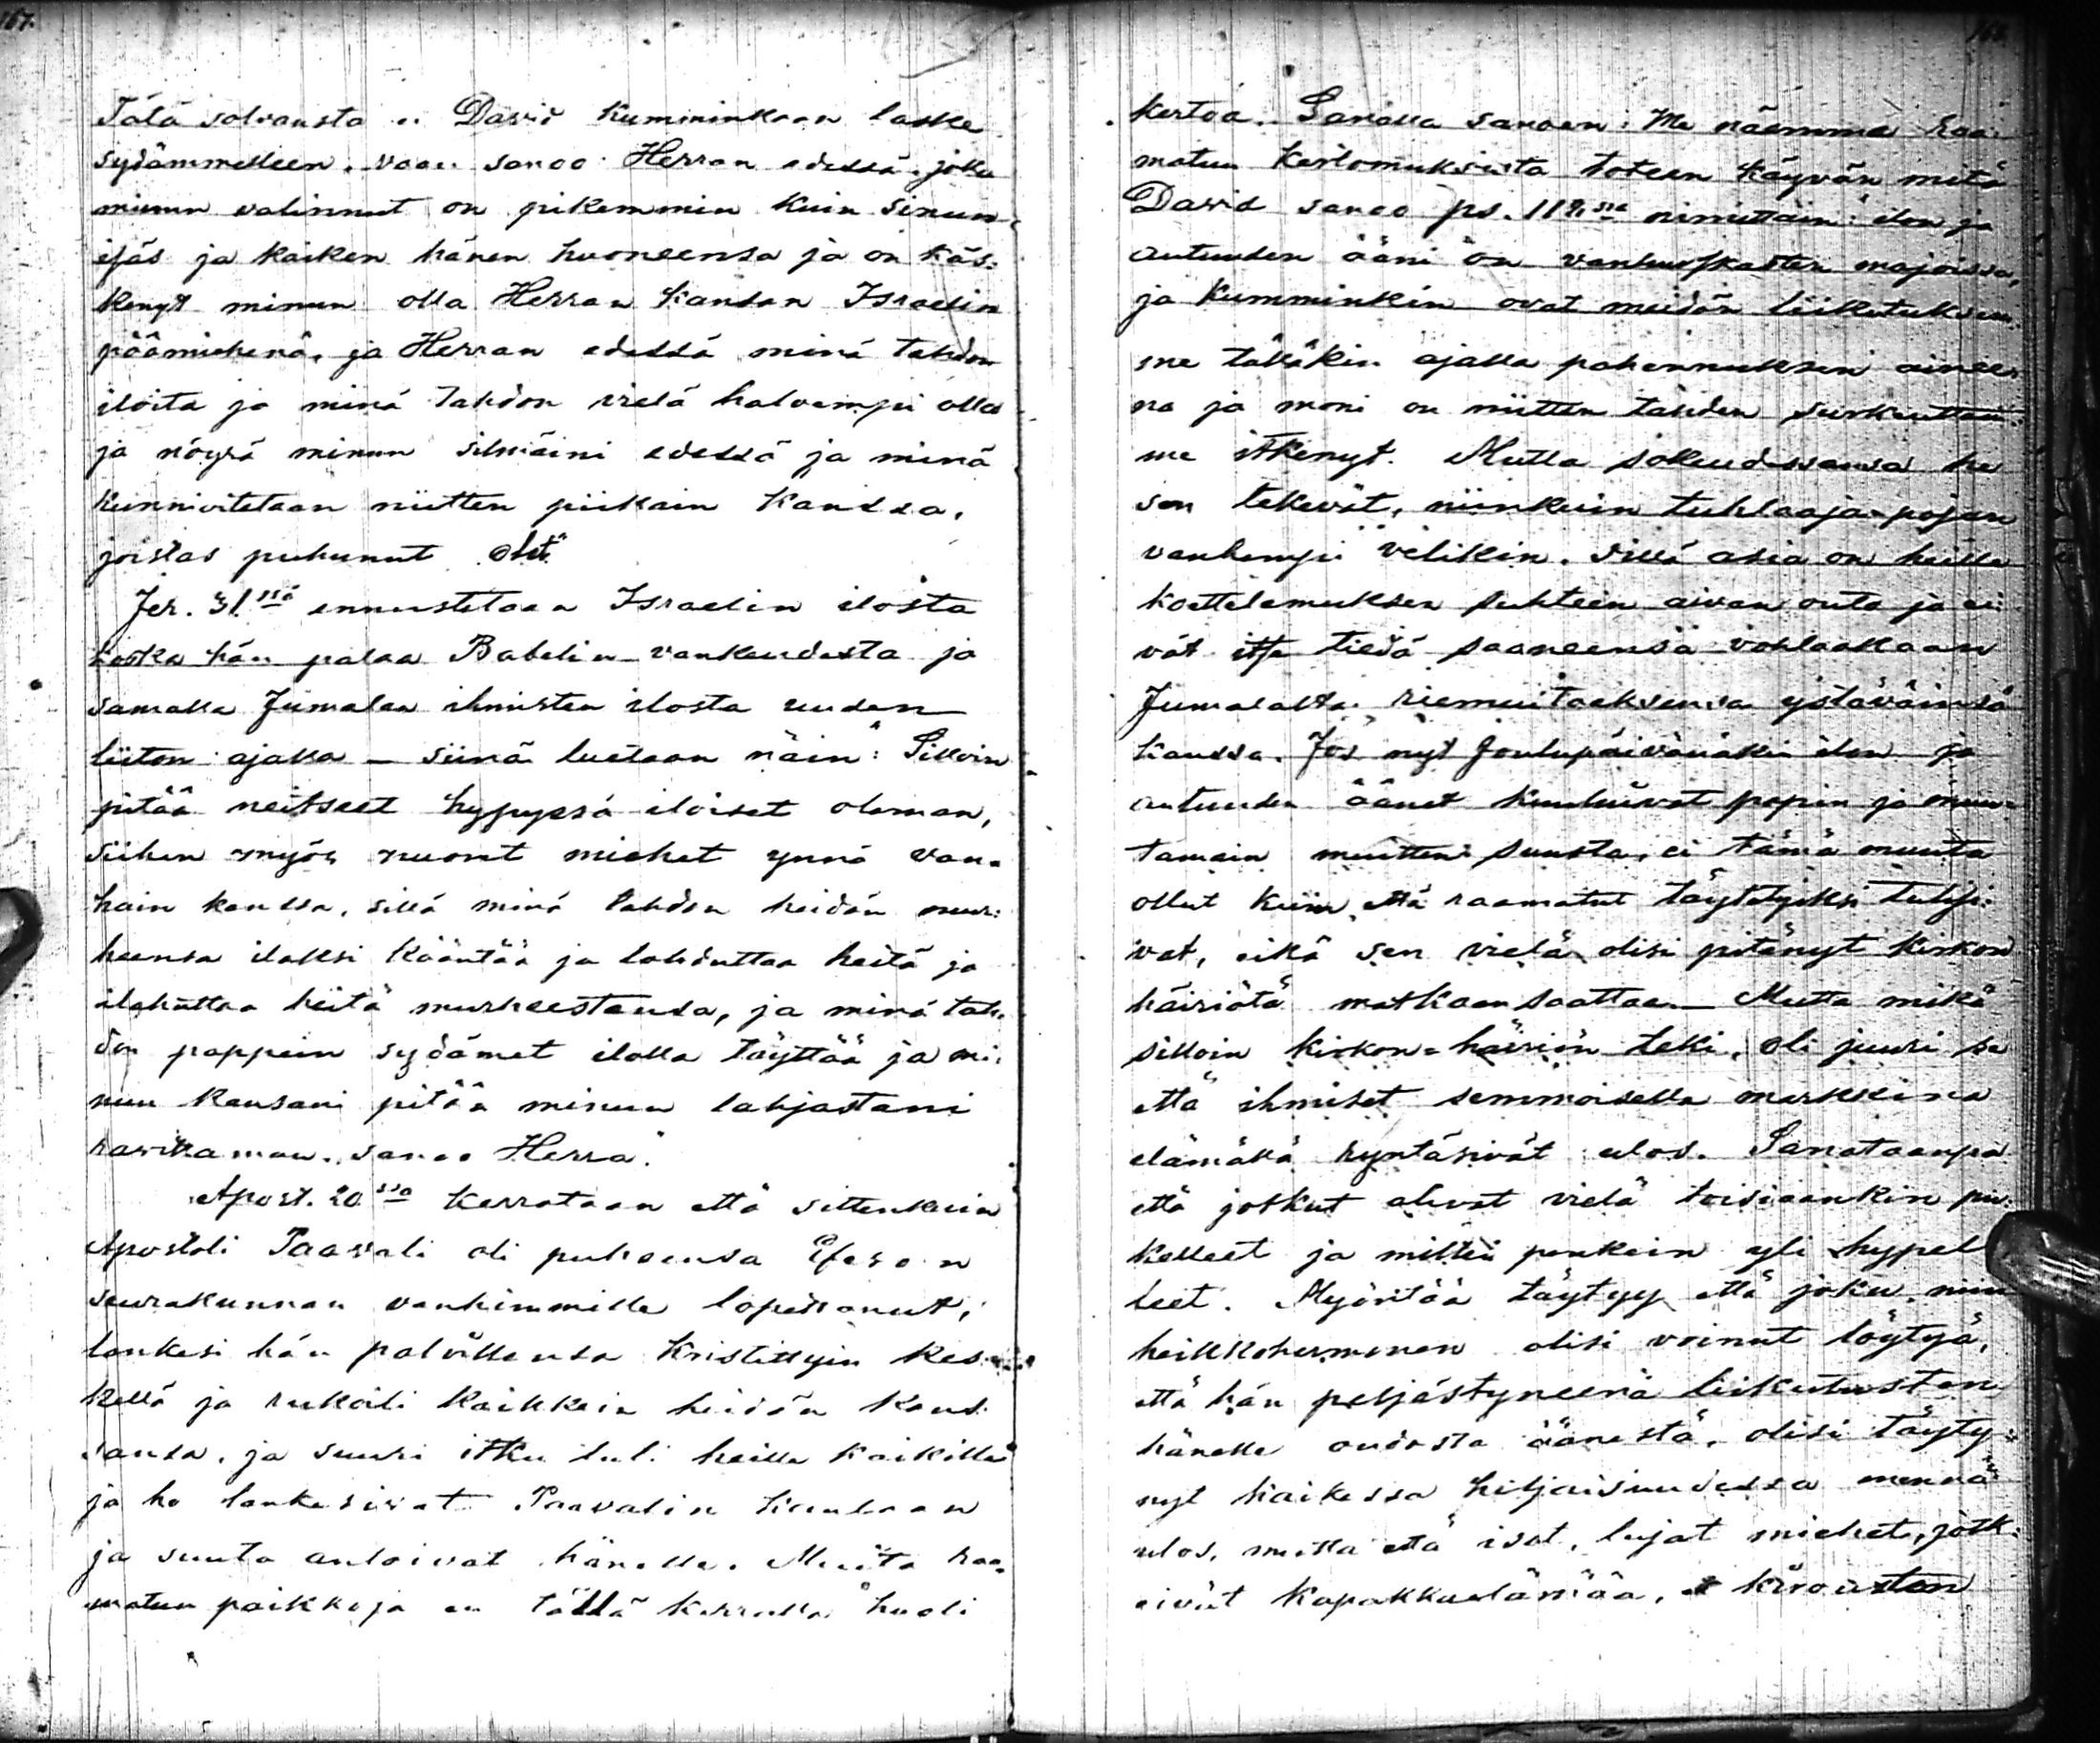 167.
Tätä solvausta ei David kumminkaan laske
sydämmelleen, vaan sanoo: Herran edessä, joka
minun valinnut on pikemmin kuin sinun
isäs ja kaiken hänen huoneensa ja on käs-
kenyt minun olla Herran kansan Israelin
päämiehenä, ja Herran edessä minä tahdon
iloita ja minä tahdon vielä halvempi olla
ja nöyrä minun silmäini edessä ja minä
kunnivitetaan niitten piikain kanssa,
joistas puhunut olet"
Jer. 31.ssä ennustetaan Israelin ilosta
koska hän palaa Babelin vankeudesta ja
samalla Jumalan ihmisten ilosta uuden
liiton ajalla — siinä luetaan näin": Silloin
pitää neitseet hypyssä iloiset oleman,
siihen myös nuoret miehet ynnä van-
hain kanssa, sillä minä tahdon heidän mur-
heensa iloksi kääntää ja lohduttaa heitä ja
ilahuttaa heitä murheestansa, ja minä tah-
don pappein sydämet ilolla täyttää ja mi-
nun kansani pitää minun lahjastani
ravittaman, sanoo Herra."
Apost. 20.ssa kerrotaan että sittenkuin
Apostoli Paavali oli puheensa Efeson
seurakunnan vanhimmille lopettanut,
lankesi hän polvillensa Kristittyin kes-
kellä ja rukoili kaikkein heidän kans-
sansa, ja suuri itku tuli heille kaikille
ja he lankesivat Paavalin kaulaan
ja suuta antoivat hänelle. Muita raa-
matun paikkoja en tällä kerralla huoli
168.
kertoa. Sanalla sanoen: Me näemme raa-
matun kertomuksista toteen käyvän mitä
David sanoo ps. 118.ssa nimittäin: ilon ja
autuuden ääni on vanhurskasten majoissa,
ja kumminkin ovat meidän liikutuksem-
me tälläkin ajalla pahennuksen ainee-
na ja moni on niitten tähden surkuttam-
me itkenyt. Mutta sokeudessansa he
sen tekevät, niinkuin tuhlaaja-pojan
vanhempi velikin. Sillä asia on heille
koettelemuksen suhteen aivan outo ja ei-
vät itse tiedä saaneensa vohlaakaan
Jumalalta riemuitaksensa ystäväinsä
kanssa. Jos nyt Joulupäivänäkin ilon ja
autuuden äänet kuuluivat papin ja muu-
tamain muitten suusta, ei tämä muuta
ollut kuin, että raamatut täytetyiksi tulisi-
vat, eikä sen vielä olisi pitänyt kirkon
häiriötä matkaan saattaa. — Mutta mikä
silloin kirkon-häiriön teki, oli juuri se
että ihmiset semmoisella markkina
elämällä ryntäsivät ulos. Sanotaanpa
että jotkut olivat vielä toisiaankin pu-
kelleet ja miltei penkein yli hypel-
leet. Myöntää täytyy että joku niin
heikkohermonen olisi voinut löytyä,
että hän peljästyneenä liikutusten
hänelle oudosta äänestä, olisi täyty-
nyt kaikessa hiljaisuudessa mennä
ulos, mutta että isot, lujat miehet, jotk-
eivät kapakkaelämää, kirousten